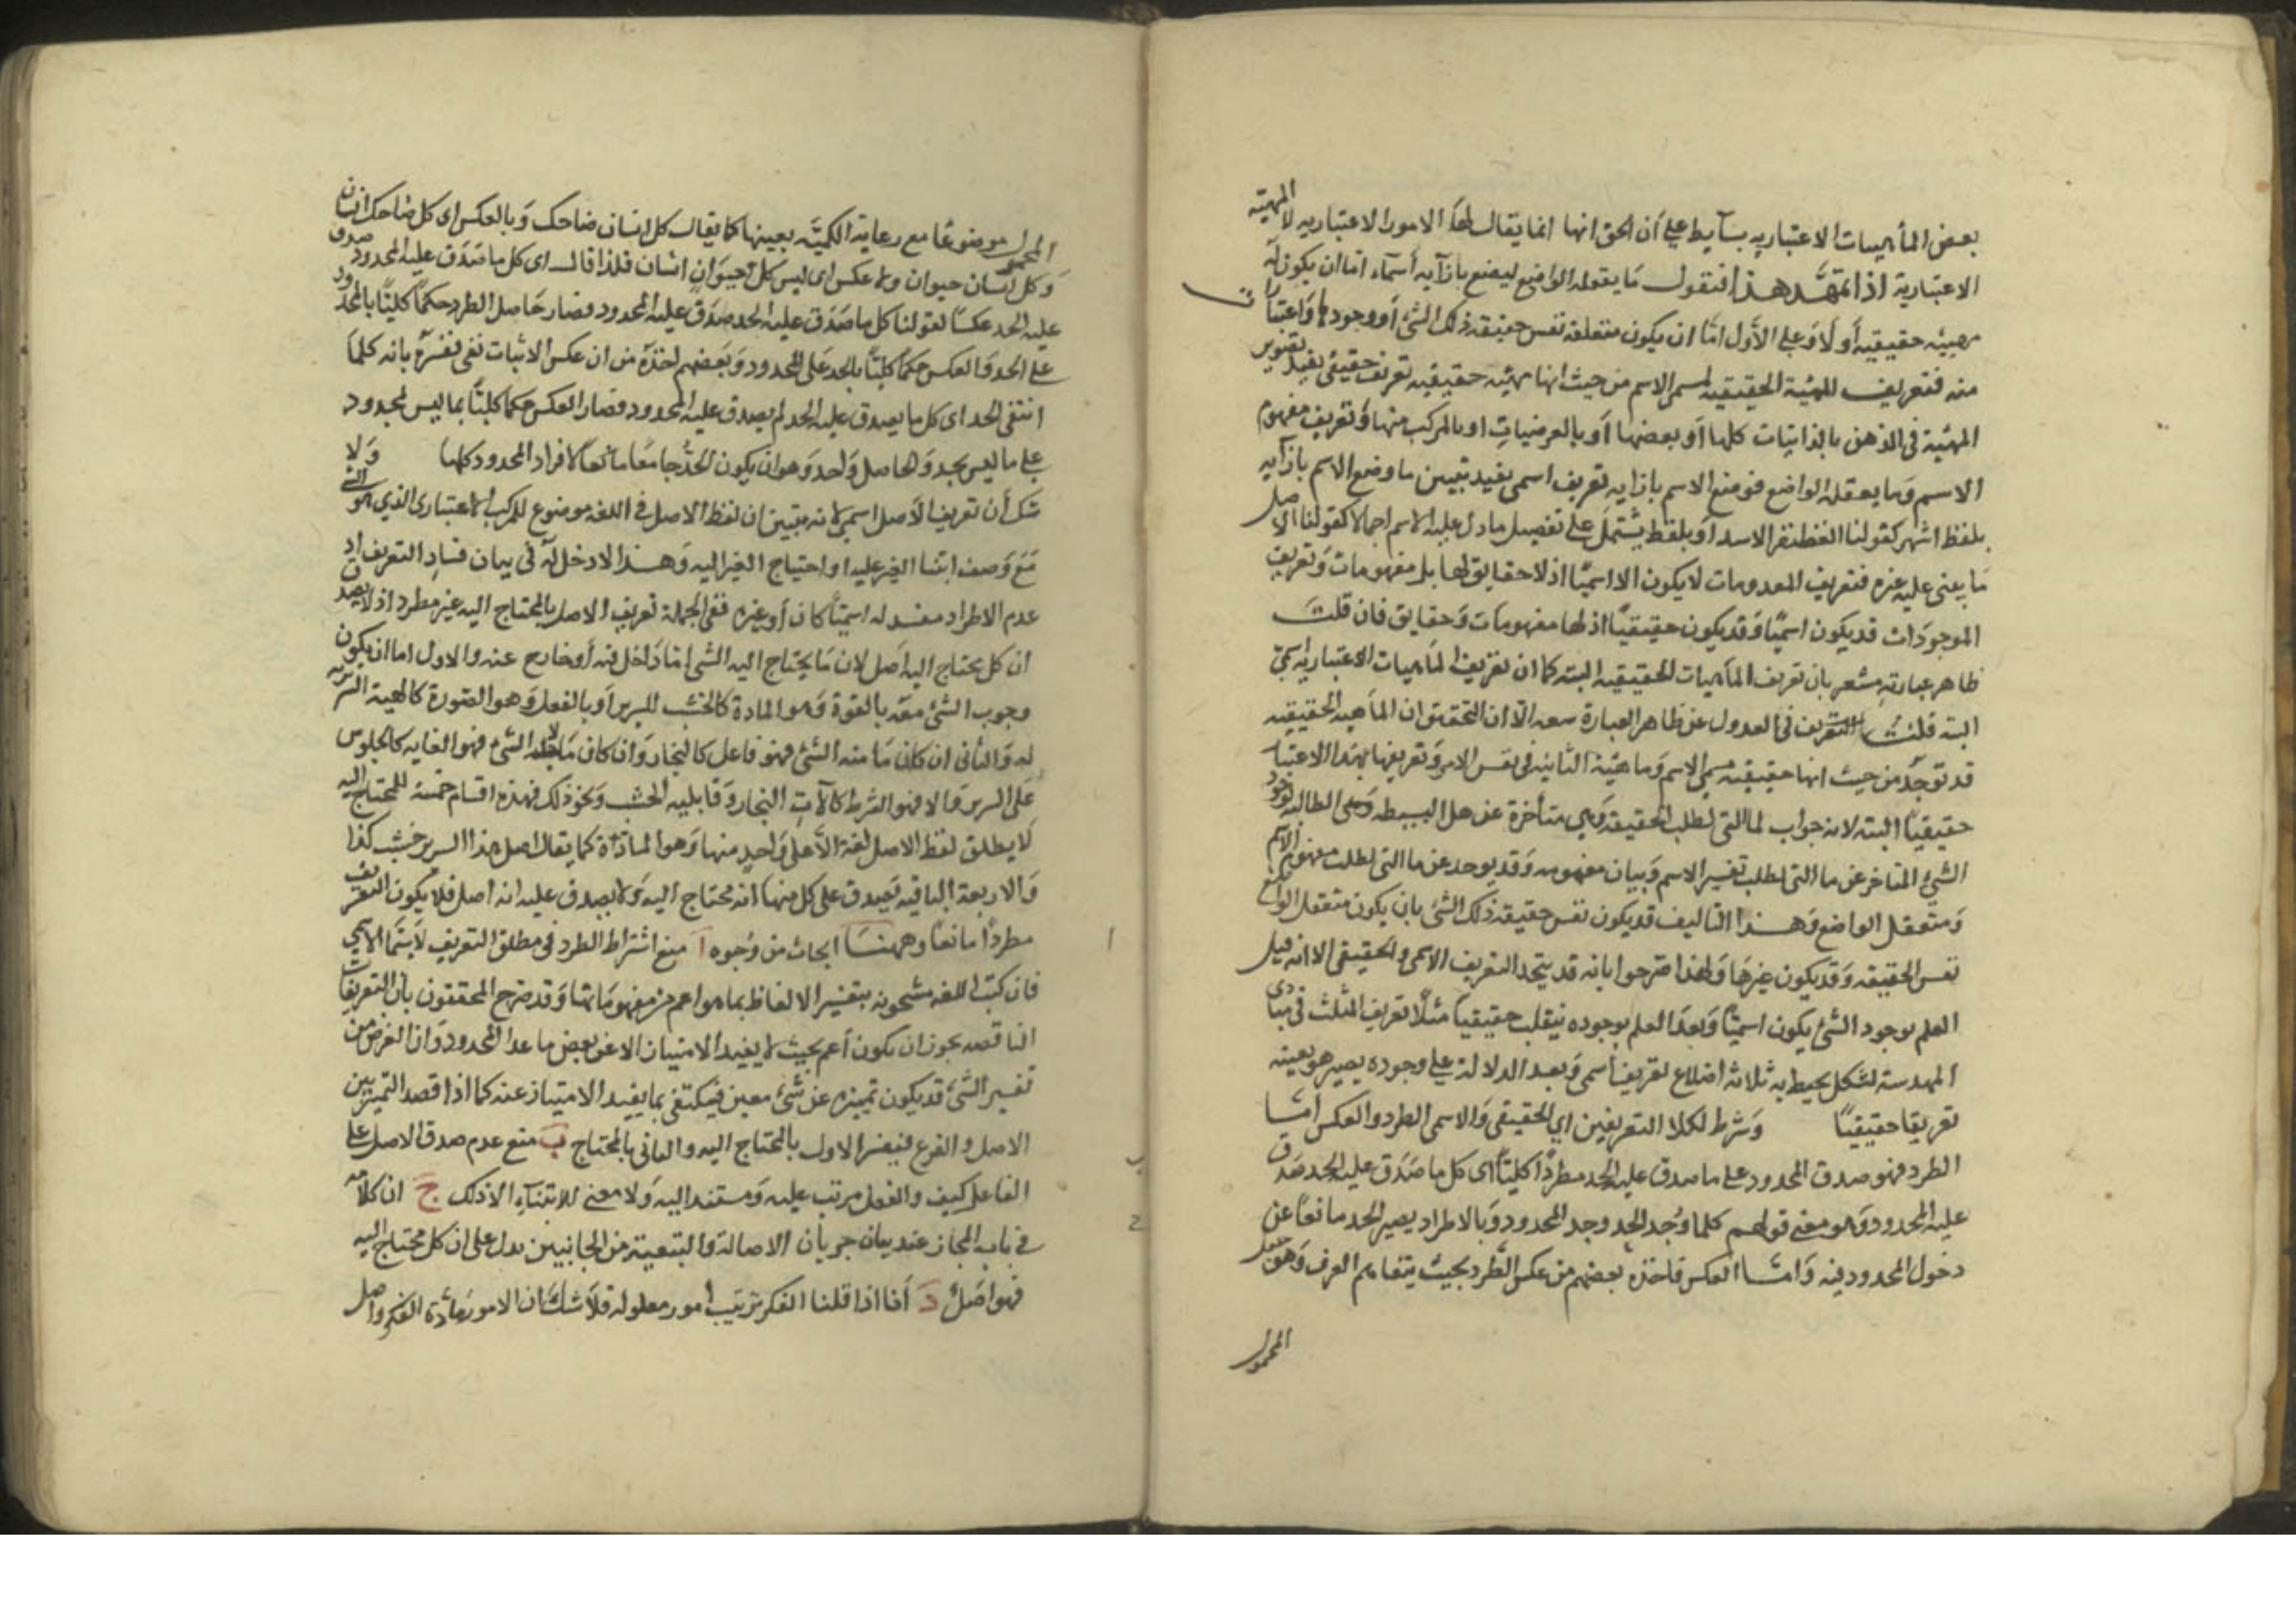 بعض الماهيات الاعتباريه بسآيط علي أن الحق انها انما يقال لها الامور الاعتباريه لا المهية
الاعتبارية اذا تمهَّد هذا فنقول مَا يقوله الواضع ليضع بازآيه أسمآء اما ان يكون له
مهيئه حقيقيه أو لا وَعلي الأول امّا ان يكون متعلقه نفس حقيقه ذلك الشئ أو وجودها وَاعتبارات
منه فتعريف المهيّة الحقيقيه لمسمي الاسم من حيث انها مهيّه حقيقيه تعريف حقيقي يفيد تصوير
المهيّة في الذهن بالذاتيات كلها أو بعضها أو بالعرضياتِ او بالمركب منها وَتعريف مفهوم
الاسم وَما يعقله الواضع فوضع الاسم بازايه تعريف اسمي يفيد تبيين ما وضع الاسم بازآيه
بلفظ اشهر كقولنا الغضنفر الاسد أو بلفظ يشتمل علي تفصيل ما دل عليه الاسم اجمالا كقولنا الاصل
مَا يبني عليه غيره فتعريف المعدومات لا يكون الا اسميًا اذ لا حقايق لها بل مفهومات وَتعريف
الموجودَات قد يكون اسميًا وَقد يكون حقيقيًا اذ لها مفهومات وَحقايق فان قلت
ظاهر عبارته مشعر بان تعريف الماهيات الحقيقيه البته كما ان تعريف الماهيات الاعتباريه اسمي
البته قلت في العدول عن ظاهر العبارة سعه الا ان التحقيق ان الماهيه الحقيقيه
قد توجد من حيث انها حقيقيه مسمي الاسم وَماهيّة الثانيه في نفس الامر وَتعريفها بهذا الاعتبار
حقيقيًا البته لانه جواب لما التي لطلب الحقيقه وَهي متأخرة عن هل البسيطه وَهي الطالبه لوجود
الشئ المتاخر عن ما التي لطلب تفسير الاسم وَبيان مفهومه وَقد يوحد عن ما التي لطلب مفهوم الاسم
وَمتعقل الواضع وَهـذا التاليف قد يكون نفس حقيقه ذلك الشئ بان يكون متعقل الواضع
نفس الحقيقه وَقد يكون غيرهَا وَلهذا صرحوا بانه قد يتحد التعريف الاسمي والحقيقي الا انه قبل
العلم بوجود الشئ يكون اسميًّا وَبعدَ العلم بوجوده ينقلب حقيقيًا مثلًا تعريف المثلث في مبادي
الهندسة لشكل يحيط به ثلاثه اضلاع تعريف اسمي وَبعد الدلالة علي وجوده يصير هو بعينه
تعريفا حقيقيًا وَشرط لكلا التعريفين اي الحقيقي وَالاسمي الطرد والعكس امّـا
الطرد فهو صدق المحدود علي ما صدق عليه الحد مطردًا كليًا اي كل ما صَدَق عليه الحد صَدق
عليه المحدود وَهو معني قولهم كلما وُجد الحد وجد المحدود وَبالاطراد يصير الحد مانعًا عن
دخول المحدود فيه وَامّـا العكس فاخذه بعضهم من عكس الطرد بحيث يتفاهم العرف وَهو جعل
المحمول
المحمول موضوعًا مع رعاية الكميّه بعينها كما يقال كل انسان ضاحك وَبالعكس اي كل ضاحك انسان
وَكل انسان حيوان ولا عكس اي ليس كل حيوَان انسان فلذا قال اي كل ما صَدَق عليه المحدود صدق
عليه الحد عكسًا لقولنا كل ما صَدَق عليه الحد صَدَق عليه المحدود فصار حَاصل الطرد حكمًا كليًا بالمحدود
علي الحد وَالعكس حكمًا كليًّا بالحد علي المحدود وَبَعضهم اخذه من ان عكس الاثبات نفي ففسّره بانه كلما
انتفي الحد اي كل ما لم يصدق عليه الحد لم يصدق عليه المحدود فصار العكس حكما كليًا بما ليس بمحدود
علي ما ليس بحد وَالحاصل وَاحد وَهو ان يكون الحدُّ جامعًا مانعًا لافراد المحدود كلها وَلا
شك أن تعريف الاصل اسمي لانه تبيين ان لفظ الاصل في اللغه موضوع للمركب الاعتباري الذي هو الشئ
مَع وَصف ابتنا الغير عليه او احتياج الغير اليه وَهـذا لا دخل له في بيان فسادِ التعريف اذ
عدم الاطراد مفسد له اسميًّا كان أو غيره ففي الجملة تعريف الاصل بالمحتاج اليه غير مطرد اذ لا يصدق
ان كل محتاج اليه اصَل لان مَا يحتاج اليه الشئ اما دَاخل فيه أو خارج عنه والاول اما ان يكون
وجوب الشئ معه بالقوة وَهو المادة كالخشب للسرير أو بالفعل وَهو الصورة كالهيئة السريريه
له وَالثاني ان كان مَا منه الشئ فهو فاعل كالنجار وَان كان مَا لاجله الشئ فهو الغايه كالجلوس
عَلي السرير وَالا فهو الشرط كآلاتِ النجار وَقابليه الخشب وَنحو ذلك فهذه اقسام خمسة للمحتاج اليه
لَا يطلق لفظ الاصل لغه الأعلي وَاحدٍ منها وَهو المادّة كما يقال اصل هذا السرير خشب كذا
وَالاربعة الباقيه يَصدق علي كل منها انه محتاج اليه وَلا يصدق عليه انه اصل فلا يكون التعريف
مطردًا مانعًا وههنـا ابحاث من وُجوه ا منع اشتراط الطرد في مطلق التعريف لا سيّما الاسمي
فان كتب اللغه مشحونه بتفسير الالفاظ بما هو اعم من مفهومَاتها وَقد صرح المحققون بان التعريفات
الناقصه يجوز ان يكون أعم بحيث لا يفيد الامتياز الا عن بعض ما عدا المحدود وَان الغرض من
تفسير الشئ قد يكون تميزه عن شئ معين فيكتفي بما يفيد الامتياز عنه كما اذا قصد التمييز بين
الاصل و الفرع فيفسر الاول بالمحتاج اليه والثاني بالمحتاج ب منع عدم صدق الاصل علي
الفاعل كيف والفعل مرتب عليه وَمستند اليه وَلا معني للابتنآءِ الا ذلك ج ان كلامه
في باب المجاز عند بيان جريان الاصالة والتبعية من الجانبين يدل علي ان كل محتاج اليه
فهو اصَلٌ د أنا اذا قلنا الفكر ترتيب امور معلومه فلا شك ان الامور مَادة الفكر واصل